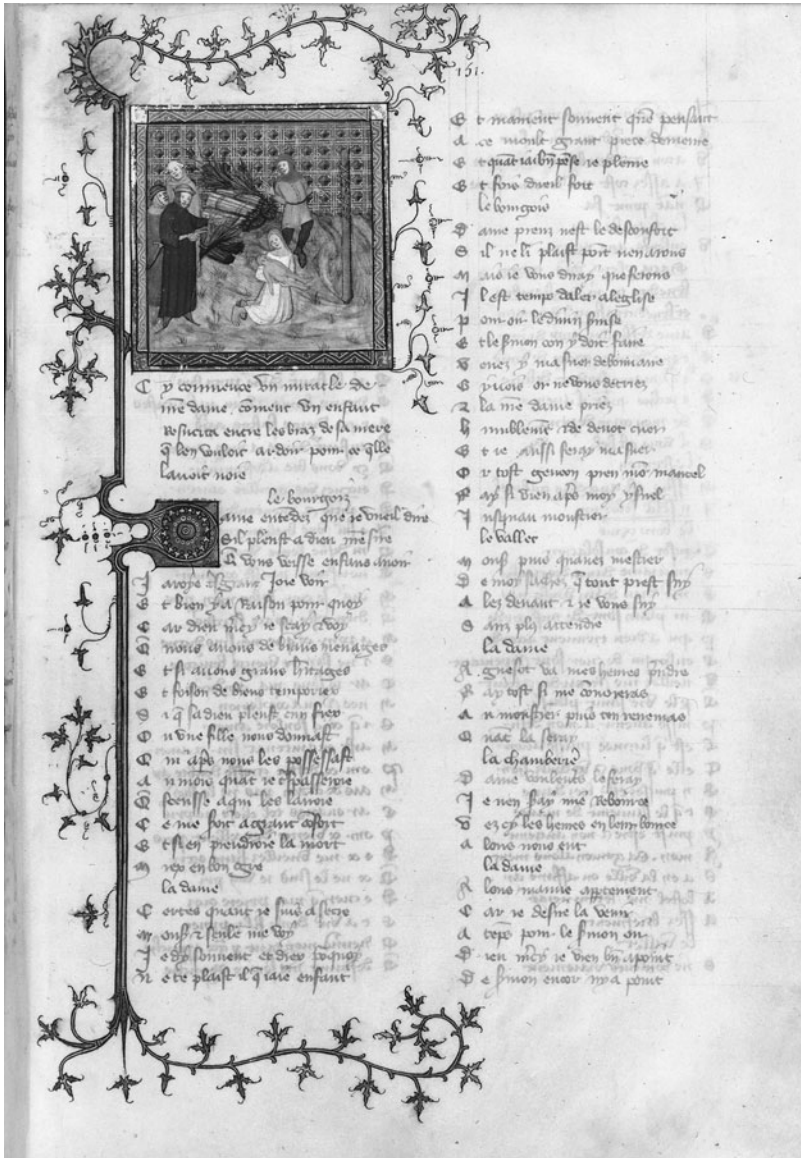 151.
C y commence un miracle de
n͞re dame, coment un enfant
Resucita entre les braz de sa mere
q̄ len vouloit ardoir pour ce q̄lle
lavoit noie
le bourgois
D ame entendez que ie vueil dire
Sil plaist a dieu
vous veisse enfans avoir
I aroye grant Joie voir
E t bien y a Raison pour quoy
C ar dieu m͞cy ie scay & voy
Q nous avons de biaus menages
E t si avons grans h͞itages
E t foison de biens temporiex
S i q̄ sa dieu plaist
O u une fille nous donnast
Q ui ap͞s nous les possessast
A u moins quāt ie t͞passeroie
Q sceusse a qui les lairoie
C e me soit a grant 9fort
E t si en prendroie la mort
M iex en bon gre
la dame
C ertes quant ie suis a secre
M ons͞ & seule me voy
I e dy souvent et diex po͞quoy
N e te plaist il q̄ iaie enfant
E t maient souvent quen pensant
A ce moult grant piece demeure
E t quāt iay bn͞ pense ie pleure
E t fons dueil fort
le bourgois
D ame prenez nest le desconfort
S il ne li plaist point nen arons
M ais ie vous diray que ferons
I l est temps daler a leglise
P our oir le divin servise
E t le s͞mon con y doit faire
V enez y ma suer debonnaire
or ne vous detriez
& la m͞e dame priez
H umblement & de devot cuer
E t ie aussi feray ma suer
O r tost gervon pren mō mantel
& Ray si vien ap͞s moy ysnel
I usquau moustier
le vallet
M ons͞ puis quavez mestier
D e moy sachez q̄ tout prest suy
A lez devant & ie vous suy
S anz plus attendre
la dame
A guesot va mes heures p͞ndre
Ray tost si me convoieras
A u moustier puis ten revenras
Q uāt la seray
la chamberiere
D ame voulentiers le feray
I e nen fay mie
V ez cy les heures en
A lons nous ent
la dame
A lons mamie app͞tement
C ar ie desire la venir
A teps pour le s͞mon oir
D ieu m͞cy ie vien bn͞ a point
D e s͞mon encor ny a point